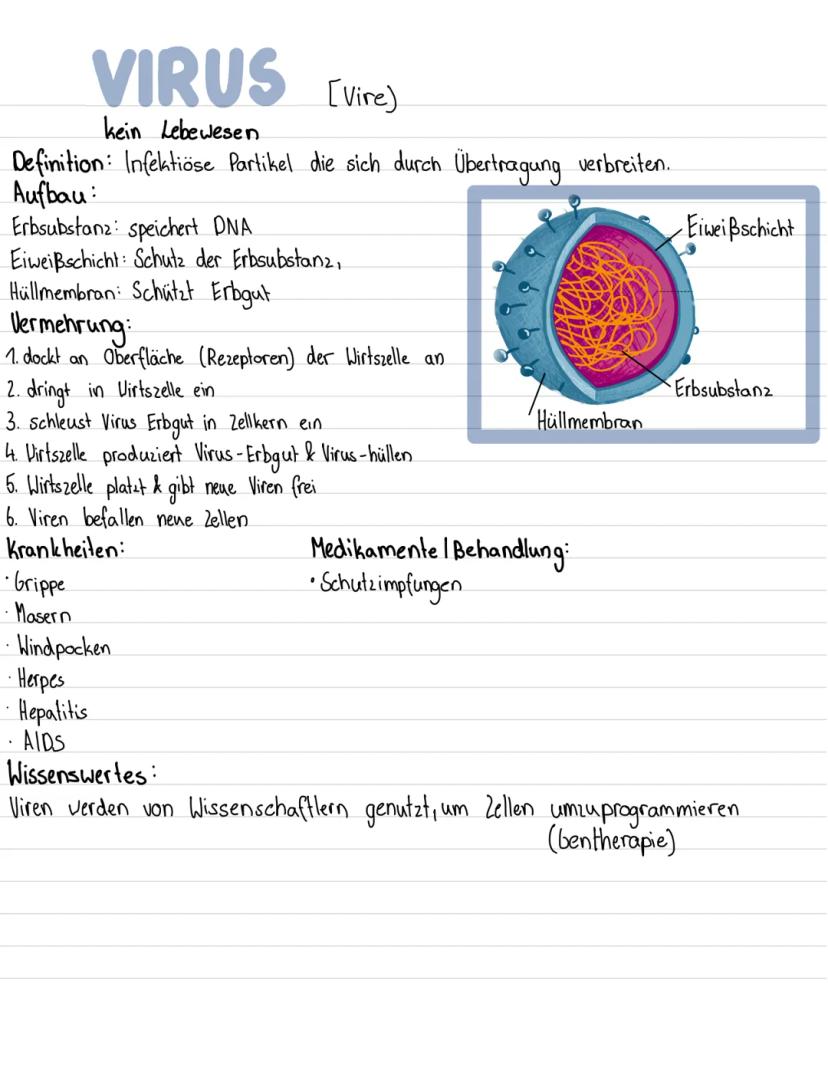 VIRUS [Vire)
kein Lebewesen
Definition: Infektiöse Partikel die sich durch Übertragung verbreiten.
Aufbau:
Erbsubstanz: speichert DNA
Eiweißschicht: Schutz der Erbsubstanz,
Hüllmembran: Schützt Erbgut
Eiweißschicht
Erbsubstanz
Hüllmembran
Vermehrung:
1. dockt an Oberfläche (Rezeptoren) der Wirtszelle an
2. dringt in Wirtszelle ein
3. schleust Virus Erbgut in Zellkern ein
4. Wirtszelle produziert Virus-Erbgut & Virus-hüllen
5. Wirtszelle platzt & gibt neue Viren frei
6. Viren befallen neue Zellen
Krankheiten:
· Grippe
· Masern
· Windpocken
· Herpes
· Hepatitis
· AIDS
Medikamente | Behandlung:
• Schutzimpfungen
Wissenswertes:
Viren werden von Wissenschaftlern genutzt, um Zellen umzuprogrammieren
(Gentherapie)